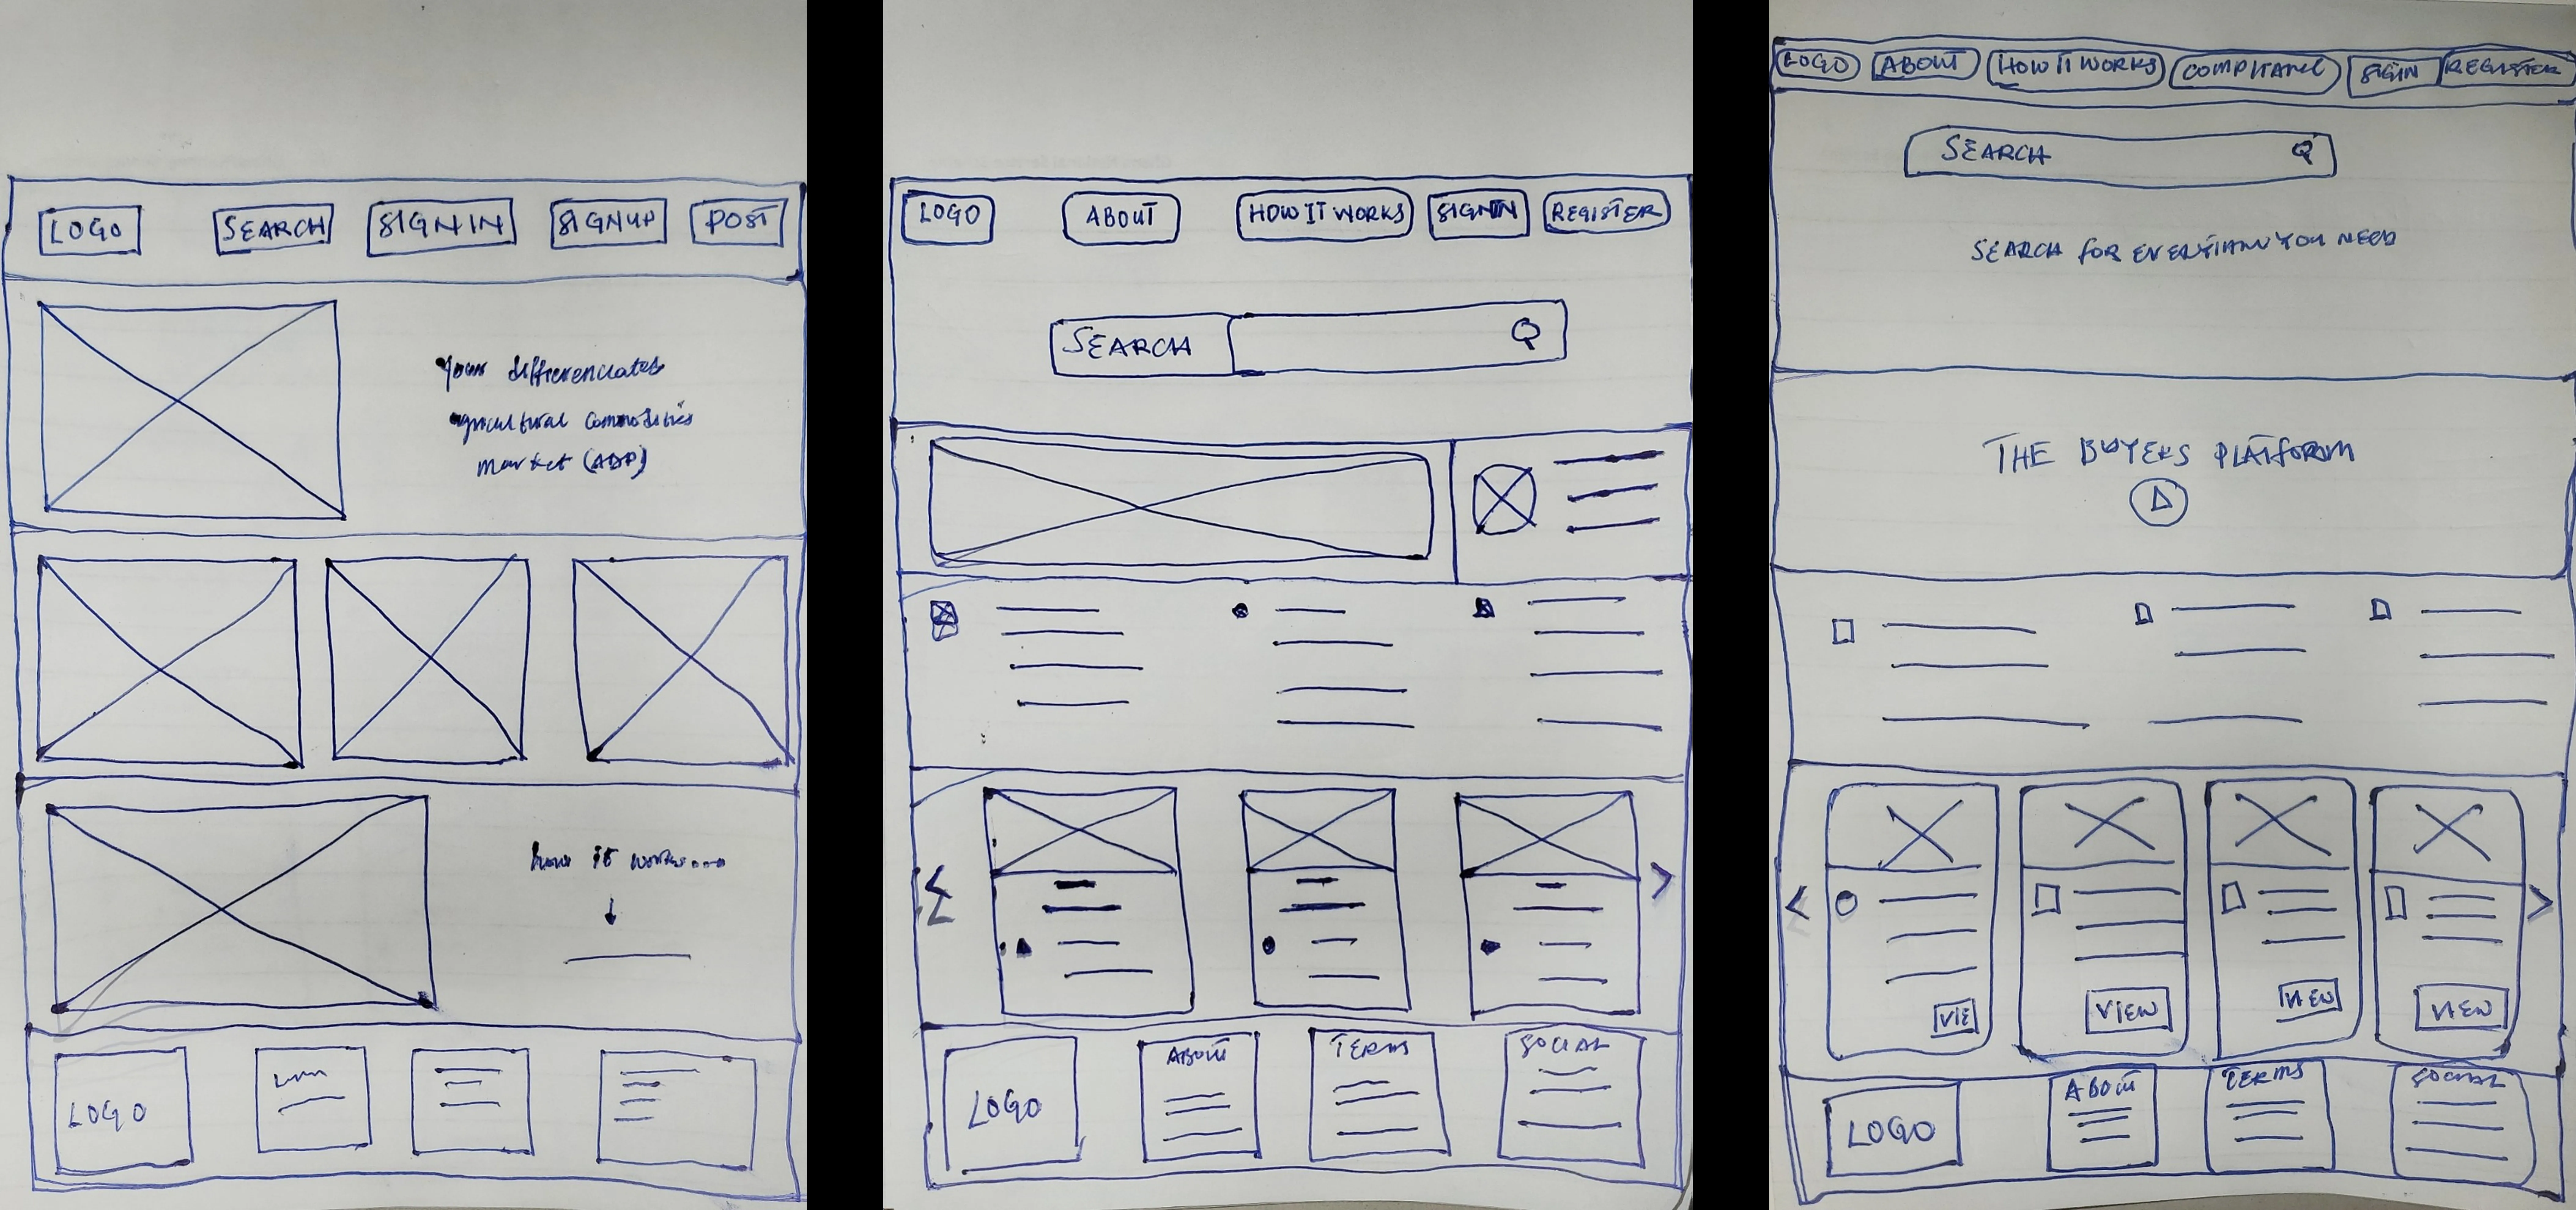 LOGO
SEARCH
SIGN IN
SIGNUP
POST
your differenciates
agricultural commodities
market (ADP)
how it works...
LOGO
LOGO
ABOUT
HOW IT WORKS
SIGNIN
REGISTER
SEARCH
LOGO
ABOUT
TERMS
SOCIAL
LOGO
ABOUT
HOW IT WORKS
COMPLIANCE
SIGIN
REGISTER
SEARCH
SEARCH FOR YOU NEED
THE BUYERS PLATFORM
VIE
VIEW
VIEW
VIEW
LOGO
ABOUT
TERMS
SOCIAL